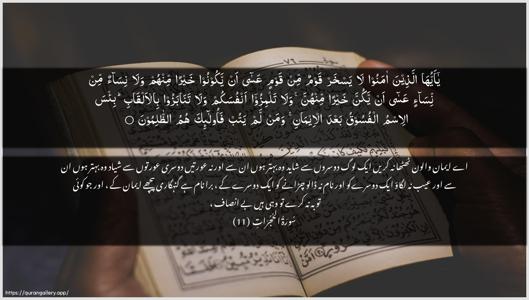 يٰٓاَيُّهَا الَّذِيْنَ اٰمَنُوْا لَا يَسْخَرْ قَوْمٌ مِّنْ قَوْمٍ عَسٰٓى اَنْ يَّكُوْنُوْا خَيْرًا مِّنْهُمْ وَلَا نِسَآءٌ مِّنْ
نِّسَآءٍ عَسٰٓى اَنْ يَّكُنَّ خَيْرًا مِّنْهُنَّ ۚ وَلَا تَلْمِزُوْٓا اَنْفُسَكُمْ وَلَا تَنَابَزُوْا بِالْاَلْقَابِ ؕ بِئْسَ
الِاسْمُ الْفُسُوْقُ بَعْدَ الْاِيْمَانِ ۚ وَمَنْ لَّمْ يَتُبْ فَاُولٰٓئِكَ هُمُ الظّٰلِمُوْنَ ۝
اے ایمان والون ٹھٹھا نہ کریں ایک لوگ دوسروں سے شاید وہ بہتر ہوں ان سے اور نہ عورتیں دوسری عورتوں سے شیاد وہ بہتر ہوں ان
سے اور عیب نہ لگاؤ ایک دوسرے کو اور نام نہ ڈالو چڑانے کو ایک دوسرے کے، برا نام ہے گنہگاری پیچھے ایمان کے، اور جو کوئی
توبہ نہ کرے تو وہی ہیں بے انصاف،
سُورَةُ الْحُجُرَات (11)
https://qurangallery.app/